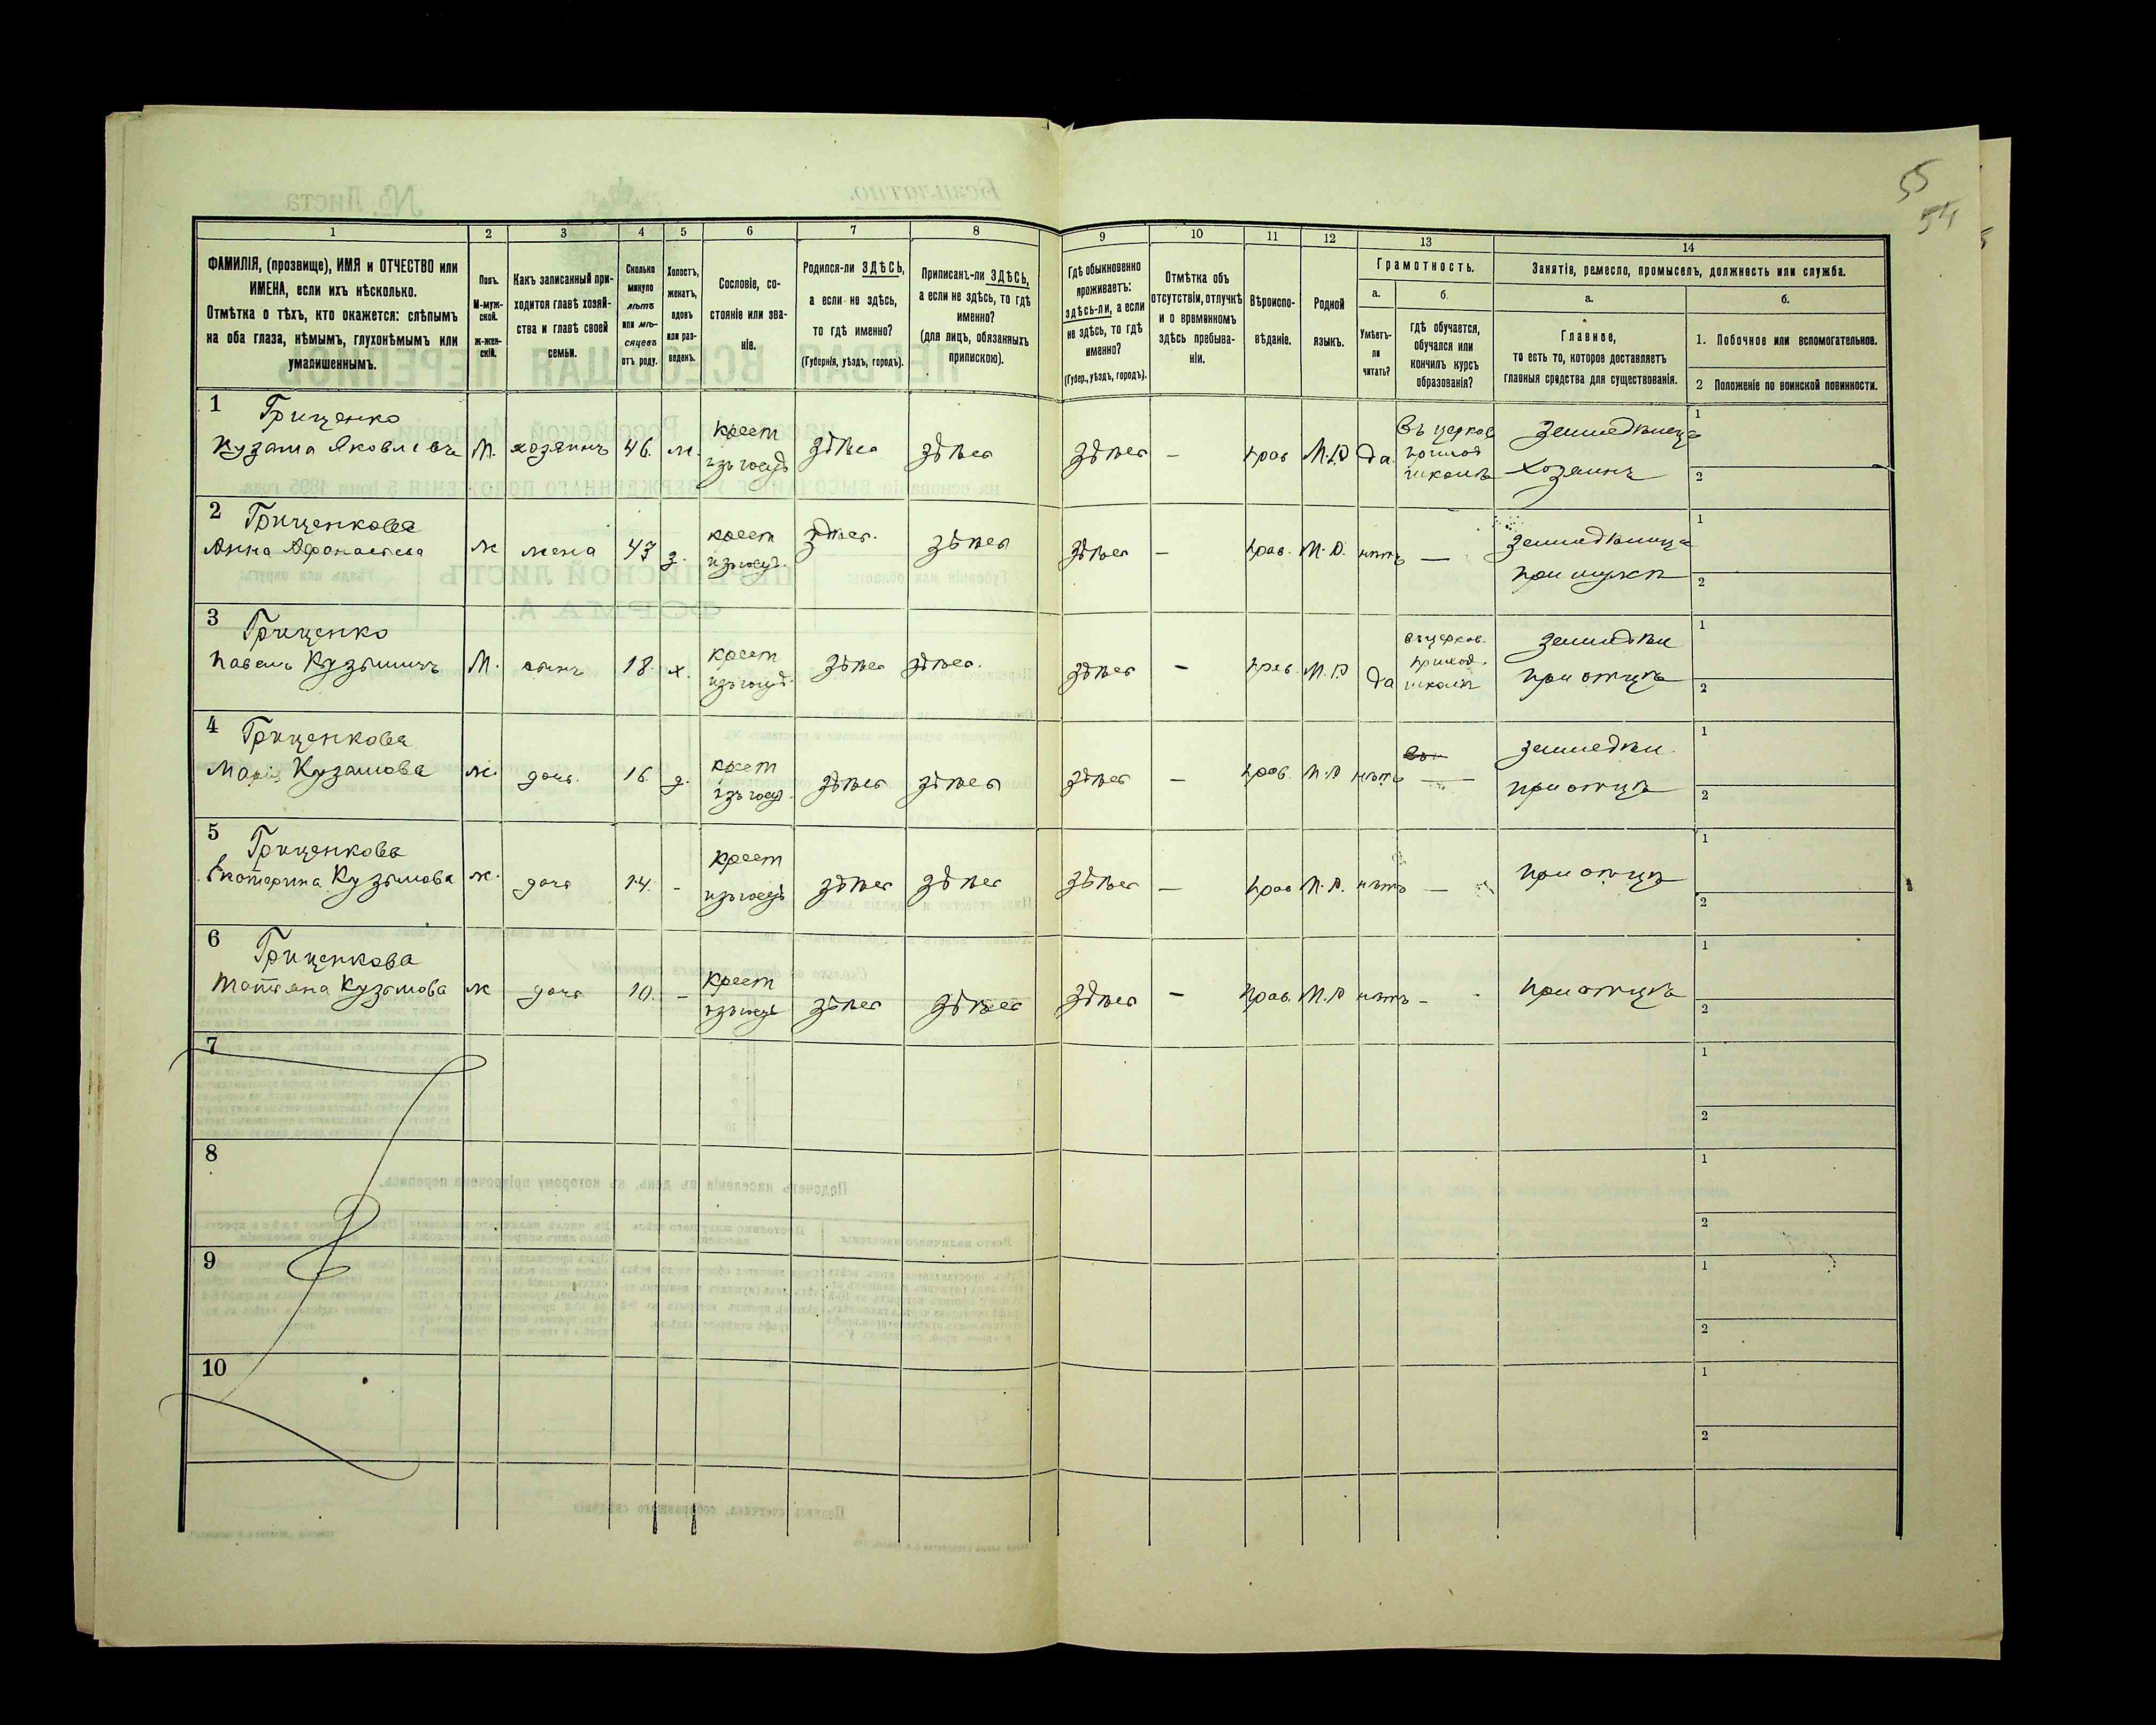 55
54
1
2
3
4
5
6
7
8
9
10
11
12
13
14
ФАМИЛІЯ, (прозвище), ИМЯ и ОТЧЕСТВО или
ИМЕНА, если ихъ нѣсколько.
Отмѣтка о тѣхъ, кто окажется: слѣпымъ
на оба глаза, нѣмымъ, глухонѣмымъ или
умалишеннымъ.
Полъ.
М-муж-
ской.
ж-жен-
скій.
Какъ записанный при-
ходится главѣ хозяй-
ства и главѣ своей
семьи.
Сколько
минуло
лѣтъ
или мѣ-
сяцевъ
отъ роду.
Холостъ,
женатъ,
вдовъ
или раз-
веденъ.
Сословіе, со-
стояніе или зва-
ніе.
Родился-ли ЗДѢСЬ,
а если не здѣсь,
то гдѣ именно?
(Губернія, уѣздъ, городъ).
Приписанъ-ли ЗДѢСЬ,
а если не здѣсь, то гдѣ
именно?
(для лицъ, обязанныхъ
припискою).
Гдѣ обыкновенно
проживаетъ:
здѣсь-ли, а если
не здѣсь, то гдѣ
именно?
(Губер., уѣздъ, городъ).
Отмѣтка объ
отсутствіи, отлучкѣ
и о временномъ
здѣсь пребыва-
ніи.
Вѣроиспо-
вѣданіе.
Родной
языкъ.
Грамотность.
а.
Умѣетъ-
ли
читать?
б.
гдѣ обучается,
обучался или
кончилъ курсъ
образованія?
Занятіе, ремесло, промыселъ, должность или служба.
а.
Главное,
то есть то, которое доставляетъ
главныя средства для существованія.
б.
1. Побочное или вспомогательное.
2 Положеніе по воинской повинности.
1 Грищенко
Кузьма Яковлевъ М. хозяинъ 46. ж. крест изъ госуд здѣсь здѣсь здѣсь — прав М.Р да. Въ церков приход школѣ земледѣлецъ Хозяинъ 1 2
2 Грищенкова
Анна Афанасіева ж жена 43 з. крест изъ госуд. здѣсь. здѣсь здѣсь — прав. М.Р. нѣтъ — земледѣлица при мужѣ 1 2
3 Грищенко
Павелъ Кузьминъ М. сынъ 18. х. крест изъ госуд. здѣсь здѣсь. здѣсь — прав. М.Р да въ церков. приход. школѣ земледѣл при отцѣ 1 2
4 Грищенкова
Марія Кузьмова ж. дочь. 16. д. крест изъ госуд. здѣсь здѣсь здѣсь — прав. М.Р нѣтъ — земледѣл. при отцѣ 1 2
5 Грищенкова
Екатерина Кузьмова ж. дочь 14. - крест изъ госуд здѣсь здѣсь здѣсь — прав М.Р. нѣтъ — при отцѣ 1 2
6 Грищенкова
Татьяна Кузьмова ж дочь 10. - Крест изъ госуд здѣсь здѣсь здѣсь — прав. М.Р нѣтъ - при отцѣ 1 2
7 1 2
8 1 2
9 1 2
10 1 2